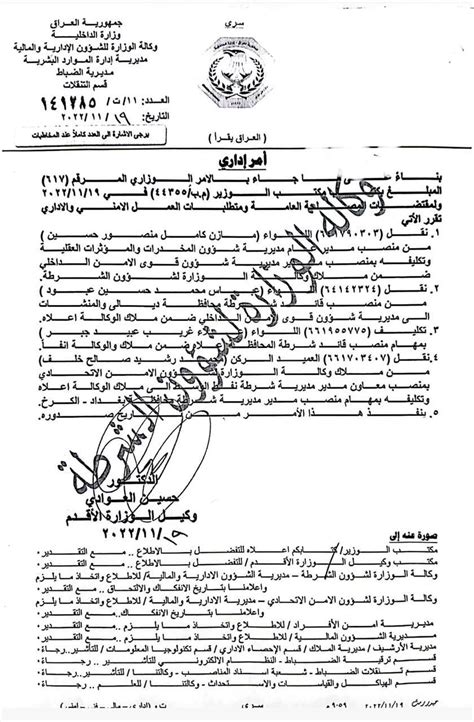 جمهورية العراق
وزارة الداخلية
وكالة الوزارة للشؤون الإدارية والمالية
مديرية إدارة الموارد البشرية
مديرية الضباط
قسم التنقلات
العدد: ١١/ت/ ١٤١٢٨٥
التاريخ: ١٩/ ١١/ ٢٠٢٢
يرجى الاشارة الى العدد كاملاً عند المخاطبات
سري
( العراق يقرأ )
أمر إداري
بناءً جاء بالامر الوزاري المرقم (٦١٧)
المبلغ مكتب الوزير (م.ب/٤٤٣٥٥) في ٢٠٢٢/١١/١٩
ولمقتضيات المصلحة العامة ومتطلبات العمل الامني والاداري
تقرر الآتي
١. نقل اللواء (مازن كامل منصور حسين)
من منصب مدير عام مديرية شؤون المخدرات والمؤثرات العقلية
وتكليفه بمنصب مدير مديرية شؤون قوى الامن الداخلي
ضمن ملاك الوزارة لشؤون الشرطة.
٢. نقل (٦٤١٤٢٣٢٤) اللواء عباس محمد حسين عبود)
من منصب قائد شرطة محافظة ديالى والمنشآت
الى مديرية شؤون قوى الامن الداخلي ضمن ملاك الوكالة اعلاه.
٣. تكليف (٦٦١٩٥٥٧٧٥) اللواء علاء غريب عبيد جبر)
بمهام منصب قائد شرطة المحافظة ضمن ملاك والوكالة انفاً.
٤. نقل (٦٦١٧٠٣٤٠٧) العميد الركن رشيد صالح خلف
من ملاك وكالة الوزارة لشؤون الامن الاتحادي
بمنصب معاون مدير مديرية شرطة الى ملاك الوكالة اعلاه
وتكليفه بمهام منصب مدير مديرية شرطة بغداد - الكرخ.
٥. ينفذ هذا الأمر من تاريخ صدوره.
وكالة الوزارة لشؤون الشرطة
الدكتور
حسين العوادي
وكيل الوزارة الأقدم
٢٠٢٢/١١/١٩
صورة منه إلى
مكتب الوزير/ كتابكم اعلاه للتفضل بالاطلاع .. مع التقدير.
مكتب وكيل الوزارة الأقدم / للتفضل بالاطلاع .. مع التقدير.
وكالة الوزارة لشؤون الشرطة – مديرية الشؤون الادارية والمالية/ للاطلاع واتخاذ ما يلزم
واعلامنا بتاريخ الانفكاك والالتحاق .. مع التقدير.
وكالة الوزارة لشؤون الامن الاتحادي – مديرية الادارية والمالية / للاطلاع واتخاذ ما يلزم
واعلامنا بتاريخ الانفكاك.. مع التقدير.
مديرية امن الأفراد / للاطلاع واتخاذ ما يلزم .. مع التقدير.
مديرية الشؤون المالية / للاطلاع واتخاذ ما يلزم.. مع التقدير.
مديرية الأرشيف / مديرية الملاك / قسم الإحصاء الاداري / قسم تكنولوجيا المعلومات / للتأشير..رجاءً
قسم ترقية الضباط – النظام الالكتروني للتأشير..رجاءً
قسم تنقلات الضباط – شعبة اسناد المناصب – كتابنا/ للتأشير..رجاءً
قسم الهياكل والقيامات والاستحداث – وكالات/ للتأشير..رجاءً
٢٠٢٢/١١/١٩
٩:٥٩
سري